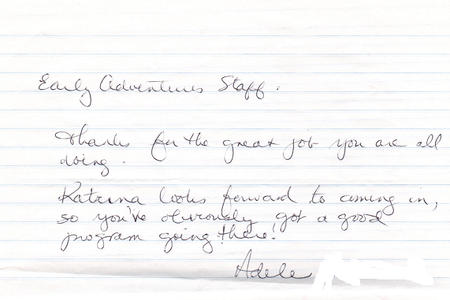 Early Adventures Staff.
Thanks for the great job you are all
doing.
Katrina looks forward to coming in,
so you've obviously got a good
program going there!
Adele